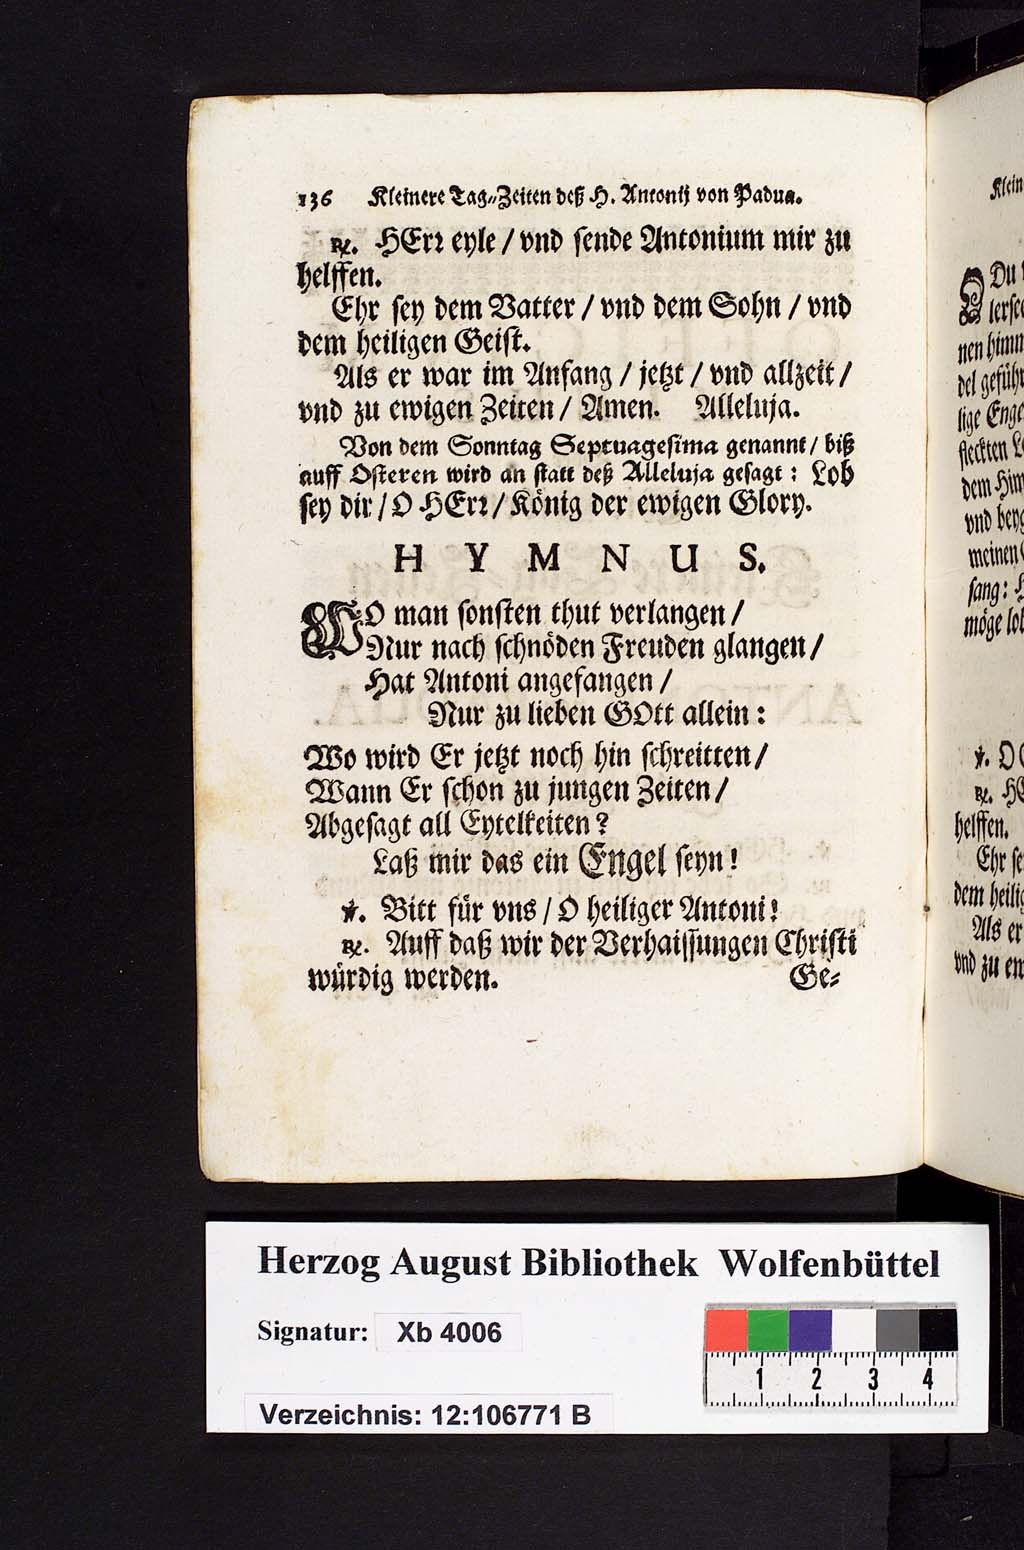 136 Kleinere Tag-Zeiten deß H. Antonij von Padua.
℟. HErr eyle / vnd sende Antonium mir zu
helffen.
Ehr sey dem Vatter / vnd dem Sohn / vnd
dem heiligen Geist.
Als er war im Anfang / jetzt / vnd allzeit /
vnd zu ewigen Zeiten / Amen. Alleluja.
Von dem Sonntag Septuagesima genannt / biß
auff Osteren wird an statt deß Alleluja gesagt : Lob
sey dir / O HErr / König der ewigen Glory.
HYMNUS.
WO man sonsten thut verlangen /
Nur nach schnöden Freuden glangen /
Hat Antoni angefangen /
Nur zu lieben GOtt allein :
Wo wird Er jetzt noch hin schreitten /
Wann Er schon zu jungen Zeiten /
Abgesagt all Eytelkeiten ?
Laß mir das ein Engel seyn !
℣. Bitt für vns / O heiliger Antoni !
℟. Auff daß wir der Verhaissungen Christi
würdig werden.
Ge-
Klein
O Du
lersee
nen himm
del geführ
lige Enge
steckten
dem Him
vnd beyg
meinen
sang :
möge lob
℣. O
℟. HE
helffen.
Ehr se
dem heilig
Als er
vnd zu ew
Herzog August Bibliothek Wolfenbüttel
Signatur: Xb 4006
1 2 3 4
Verzeichnis: 12:106771 B